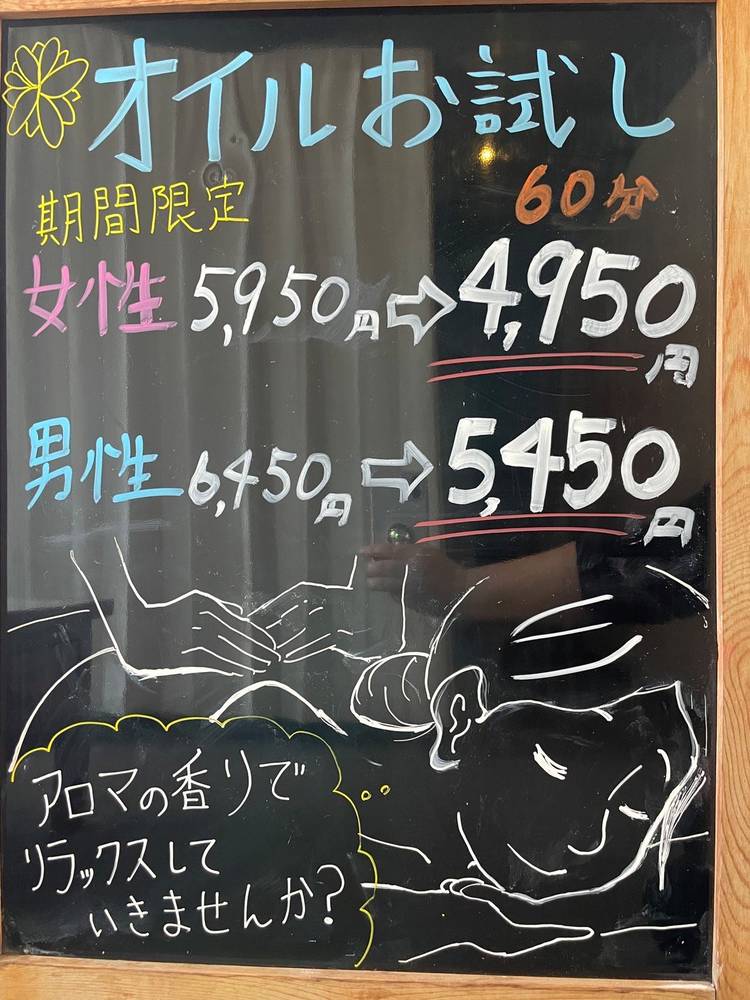 オイルお試し
期間限定 60分
女性 5,950円⇨4,950円
男性 6,450円⇨5,450円
アロマの香りで
リラックスして
いきませんか?